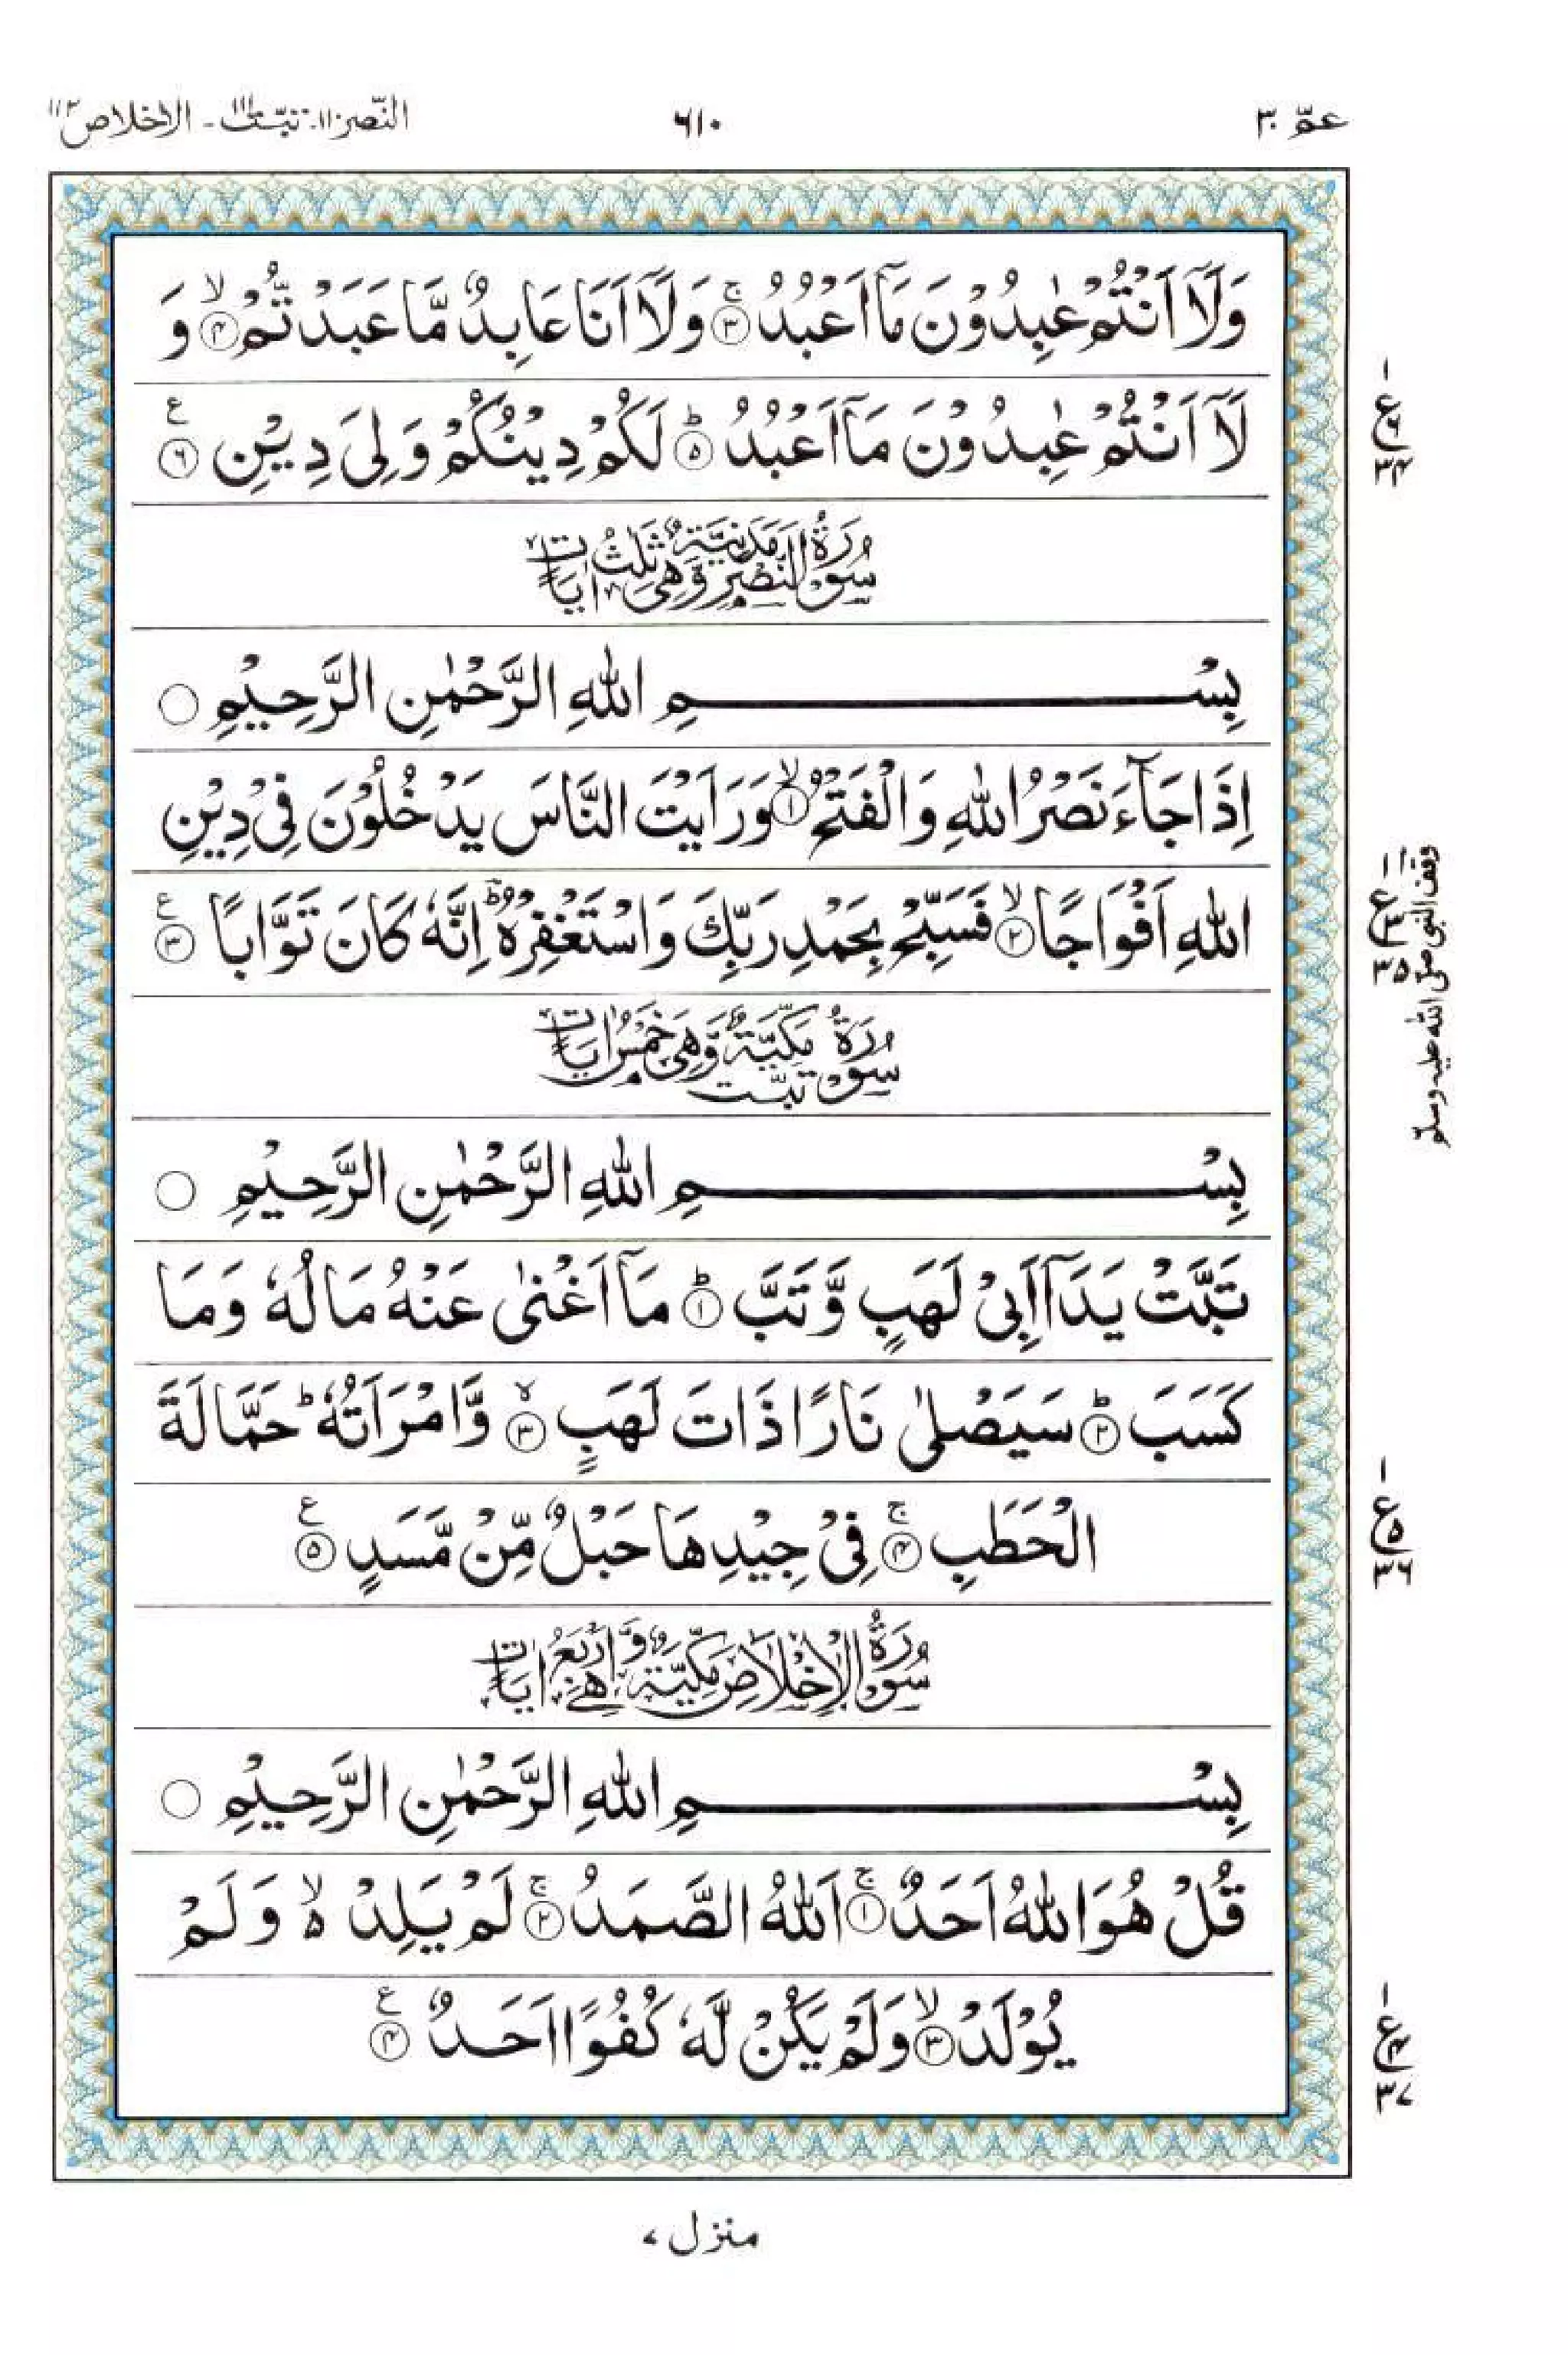 عمّ ٣٠
٦١٠
النّصر ١١٠ - تبّت ١١١ - الاخلاص ١١٢
وَلَآ اَنْتُمْ عٰبِدُوْنَ مَآ اَعْبُدُ ۚ‏﴿۳﴾ وَلَآ اَنَا عَابِدٌ مَّا عَبَدْتُّمْ ۙ‏﴿۴﴾ وَ
لَآ اَنْتُمْ عٰبِدُوْنَ مَآ اَعْبُدُ ؕ‏﴿۵﴾ لَكُمْ دِيْنُكُمْ وَلِىَ دِيْنِ ﴿۶﴾ ع
سُوْرَةُ النَّصْرِ مَدَنِيَّةٌ وَّهِىَ ثَلٰثُ اٰيَاتٍ
بِسْمِ اللهِ الرَّحْمٰنِ الرَّحِيْمِ ○
اِذَا جَآءَ نَصْرُ اللهِ وَالْفَتْحُ ۙ‏﴿۱﴾ وَرَاَيْتَ النَّاسَ يَدْخُلُوْنَ فِىْ دِيْنِ
اللهِ اَفْوَاجًا ۙ‏﴿۲﴾ فَسَبِّحْ بِحَمْدِ رَبِّكَ وَاسْتَغْفِرْهُ ؕ اِنَّهٗ كَانَ تَوَّابًا ﴿۳﴾ ع
سُوْرَةُ تَبَّتْ مَكِّيَّةٌ وَّهِىَ خَمْسُ اٰيَاتٍ
بِسْمِ اللهِ الرَّحْمٰنِ الرَّحِيْمِ ○
تَبَّتْ يَدَآ اَبِىْ لَهَبٍ وَّتَبَّ ؕ‏﴿۱﴾ مَآ اَغْنٰى عَنْهُ مَالُهٗ وَمَا
كَسَبَ ؕ‏﴿۲﴾ سَيَصْلٰى نَارًا ذَاتَ لَهَبٍ ۙ‏﴿۳﴾ وَّامْرَاَتُهٗ ؕ حَمَّالَةَ
الْحَطَبِ ۚ‏﴿۴﴾ فِىْ جِيْدِهَا حَبْلٌ مِّنْ مَّسَدٍ ﴿۵﴾ ع
سُوْرَةُ الْاِخْلَاصِ مَكِّيَّةٌ وَّهِىَ اَرْبَعُ اٰيَاتٍ
بِسْمِ اللهِ الرَّحْمٰنِ الرَّحِيْمِ ○
قُلْ هُوَ اللهُ اَحَدٌ ۚ‏﴿۱﴾ اَللهُ الصَّمَدُ ۚ‏﴿۲﴾ لَمْ يَلِدْ ۙ۬ وَلَمْ
يُوْلَدْ ۙ‏﴿۳﴾ وَلَمْ يَكُنْ لَّهٗ كُفُوًا اَحَدٌ ﴿۴﴾ ع
منزل ۷
۱ ع ۶ ۳۴
۱ ع ۳ ۳۵
وقف النبى صلى الله عليه وسلم
۱ ع ۵ ۳۶
۱ ع ۴ ۳۷